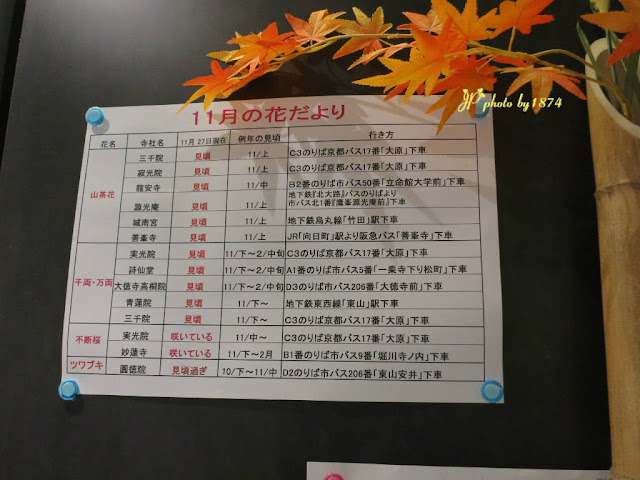 JP photo by1874
11月の花だより
花名 寺社名 11月 27日現在 例年の見頃 行き方
山茶花
三千院 見頃 11/上 C3のりば京都バス17番「大原」下車
寂光院 見頃 11/上 C3のりば京都バス17番「大原」下車
龍安寺 見頃 11/中 B2番のりば市バス50番「立命館大学前」下車
源光庵 見頃 11/上 地下鉄『北大路』バスのりばより
市バス北1番『鷹峯源光庵前』下車
城南宮 見頃 11/上 地下鉄烏丸線「竹田」駅下車
善峯寺 見頃 11/上 JR「向日町」駅より阪急バス「善峯寺」下車
千両・万両
実光院 見頃 11/下～2/中旬 C3のりば京都バス17番「大原」下車
詩仙堂 見頃 11/下～2/中旬 A1番のりば市バス5番「一乗寺下り松町」下車
大徳寺高桐院 見頃 11/下～2/中旬 D3のりば市バス206番「大徳寺前」下車
青蓮院 見頃 11/下～ 地下鉄東西線「東山」駅下車
三千院 見頃 11/下～ C3のりば京都バス17番「大原」下車
不断桜
実光院 咲いている 11/中～ C3のりば京都バス17番「大原」下車
妙蓮寺 咲いている 11/下～2月 B1番のりば市バス9番「堀川寺ノ内」下車
ツワブキ 圓徳院 見頃過ぎ 10/下～11/中 D2のりば市バス206番「東山安井」下車